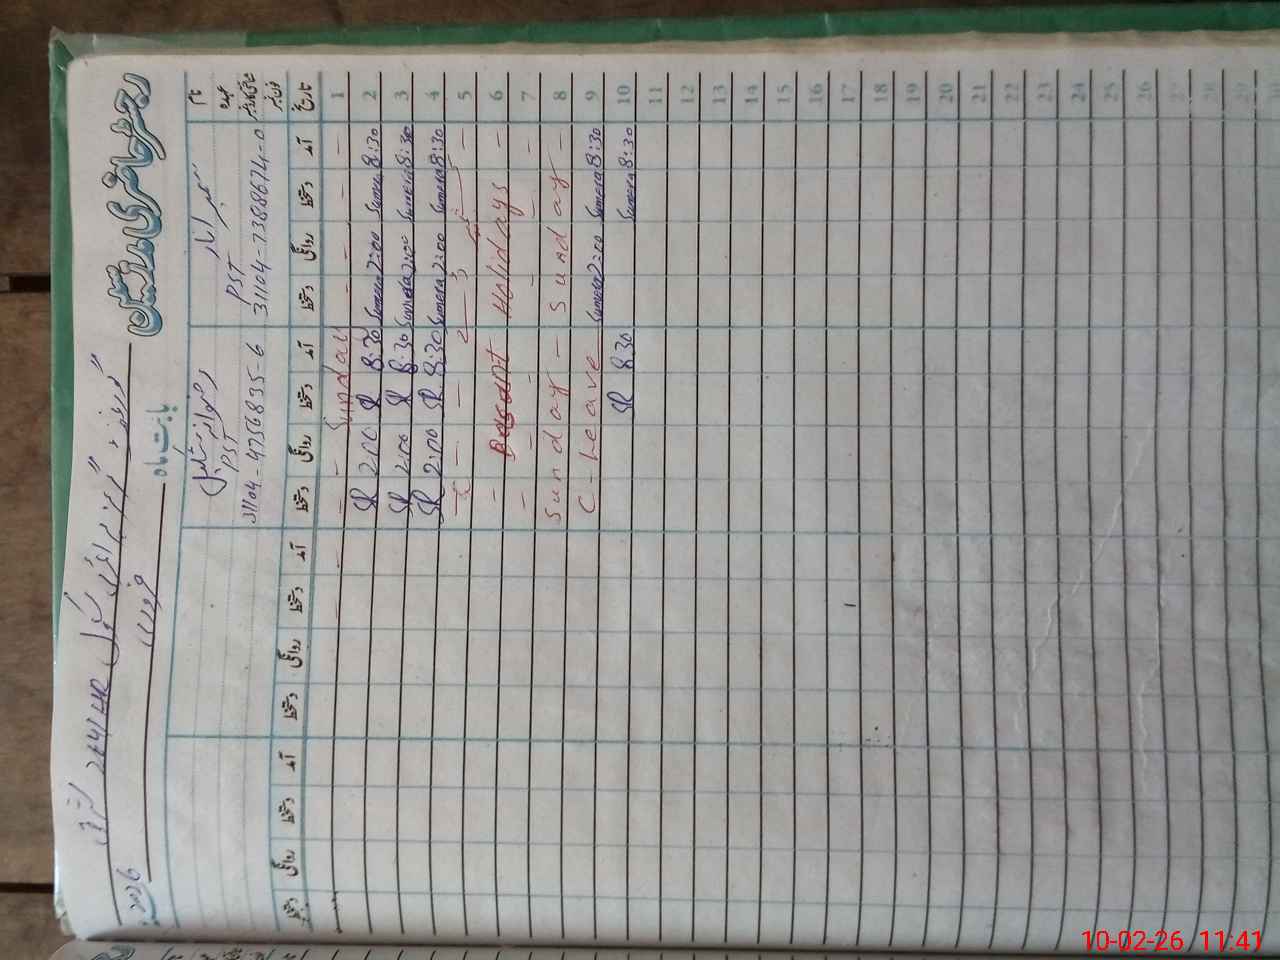 رجسٹر حاضری مدرسین
گورنمنٹ گرلز پرائمری سکول 264/HR
بابت ماہ فروری 2026
نام
عہدہ
شناختی کارڈ نمبر
فون نمبر
سمیرا نثار
PST
31104-7388674-0
PST
31104-4756835-6
تاریخ آمد دستخط روانگی دستخط آمد دستخط روانگی دستخط آمد دستخط روانگی دستخط آمد دستخط روانگی دستخط
1 - - - - Sunday - -
2 8:30 Sumera 2:00 Sumera 8:30 SR 2:00 SR
3 8:30 Sumera 2:00 Sumera 8:30 SR 2:00 SR
4 8:30 Sumera 2:00 Sumera 8:30 SR 2:00 SR
5
6 - Basant Holidays -
7 - - - - - -
8 Sunday - Sunday -
9 8:30 Sumera 2:00 Sumera C-Leave
10 8:30 Sumera 8:30 SR
11
12
13
14
15
16
17
18
19
20
21
22
23
24
25
26
27
28
29
30
10-02-26 11:41